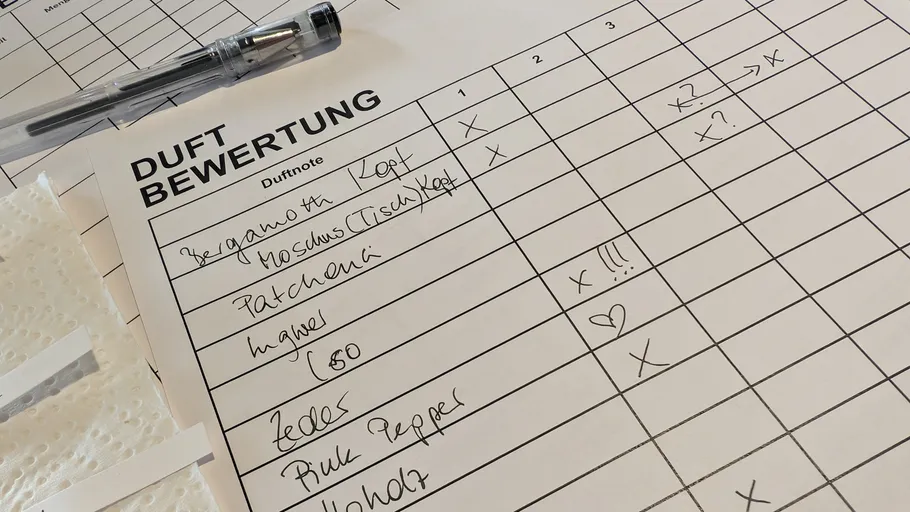 Meng
DUFT
BEWERTUNG
Duftnote
1 2 3
Bergamoth Kopf X X? → X
Moschus (Tisch) Kopf X X?
Patchouli
Ingwer
Iso X !!!
Zeder ♡
Pink Pepper X
X